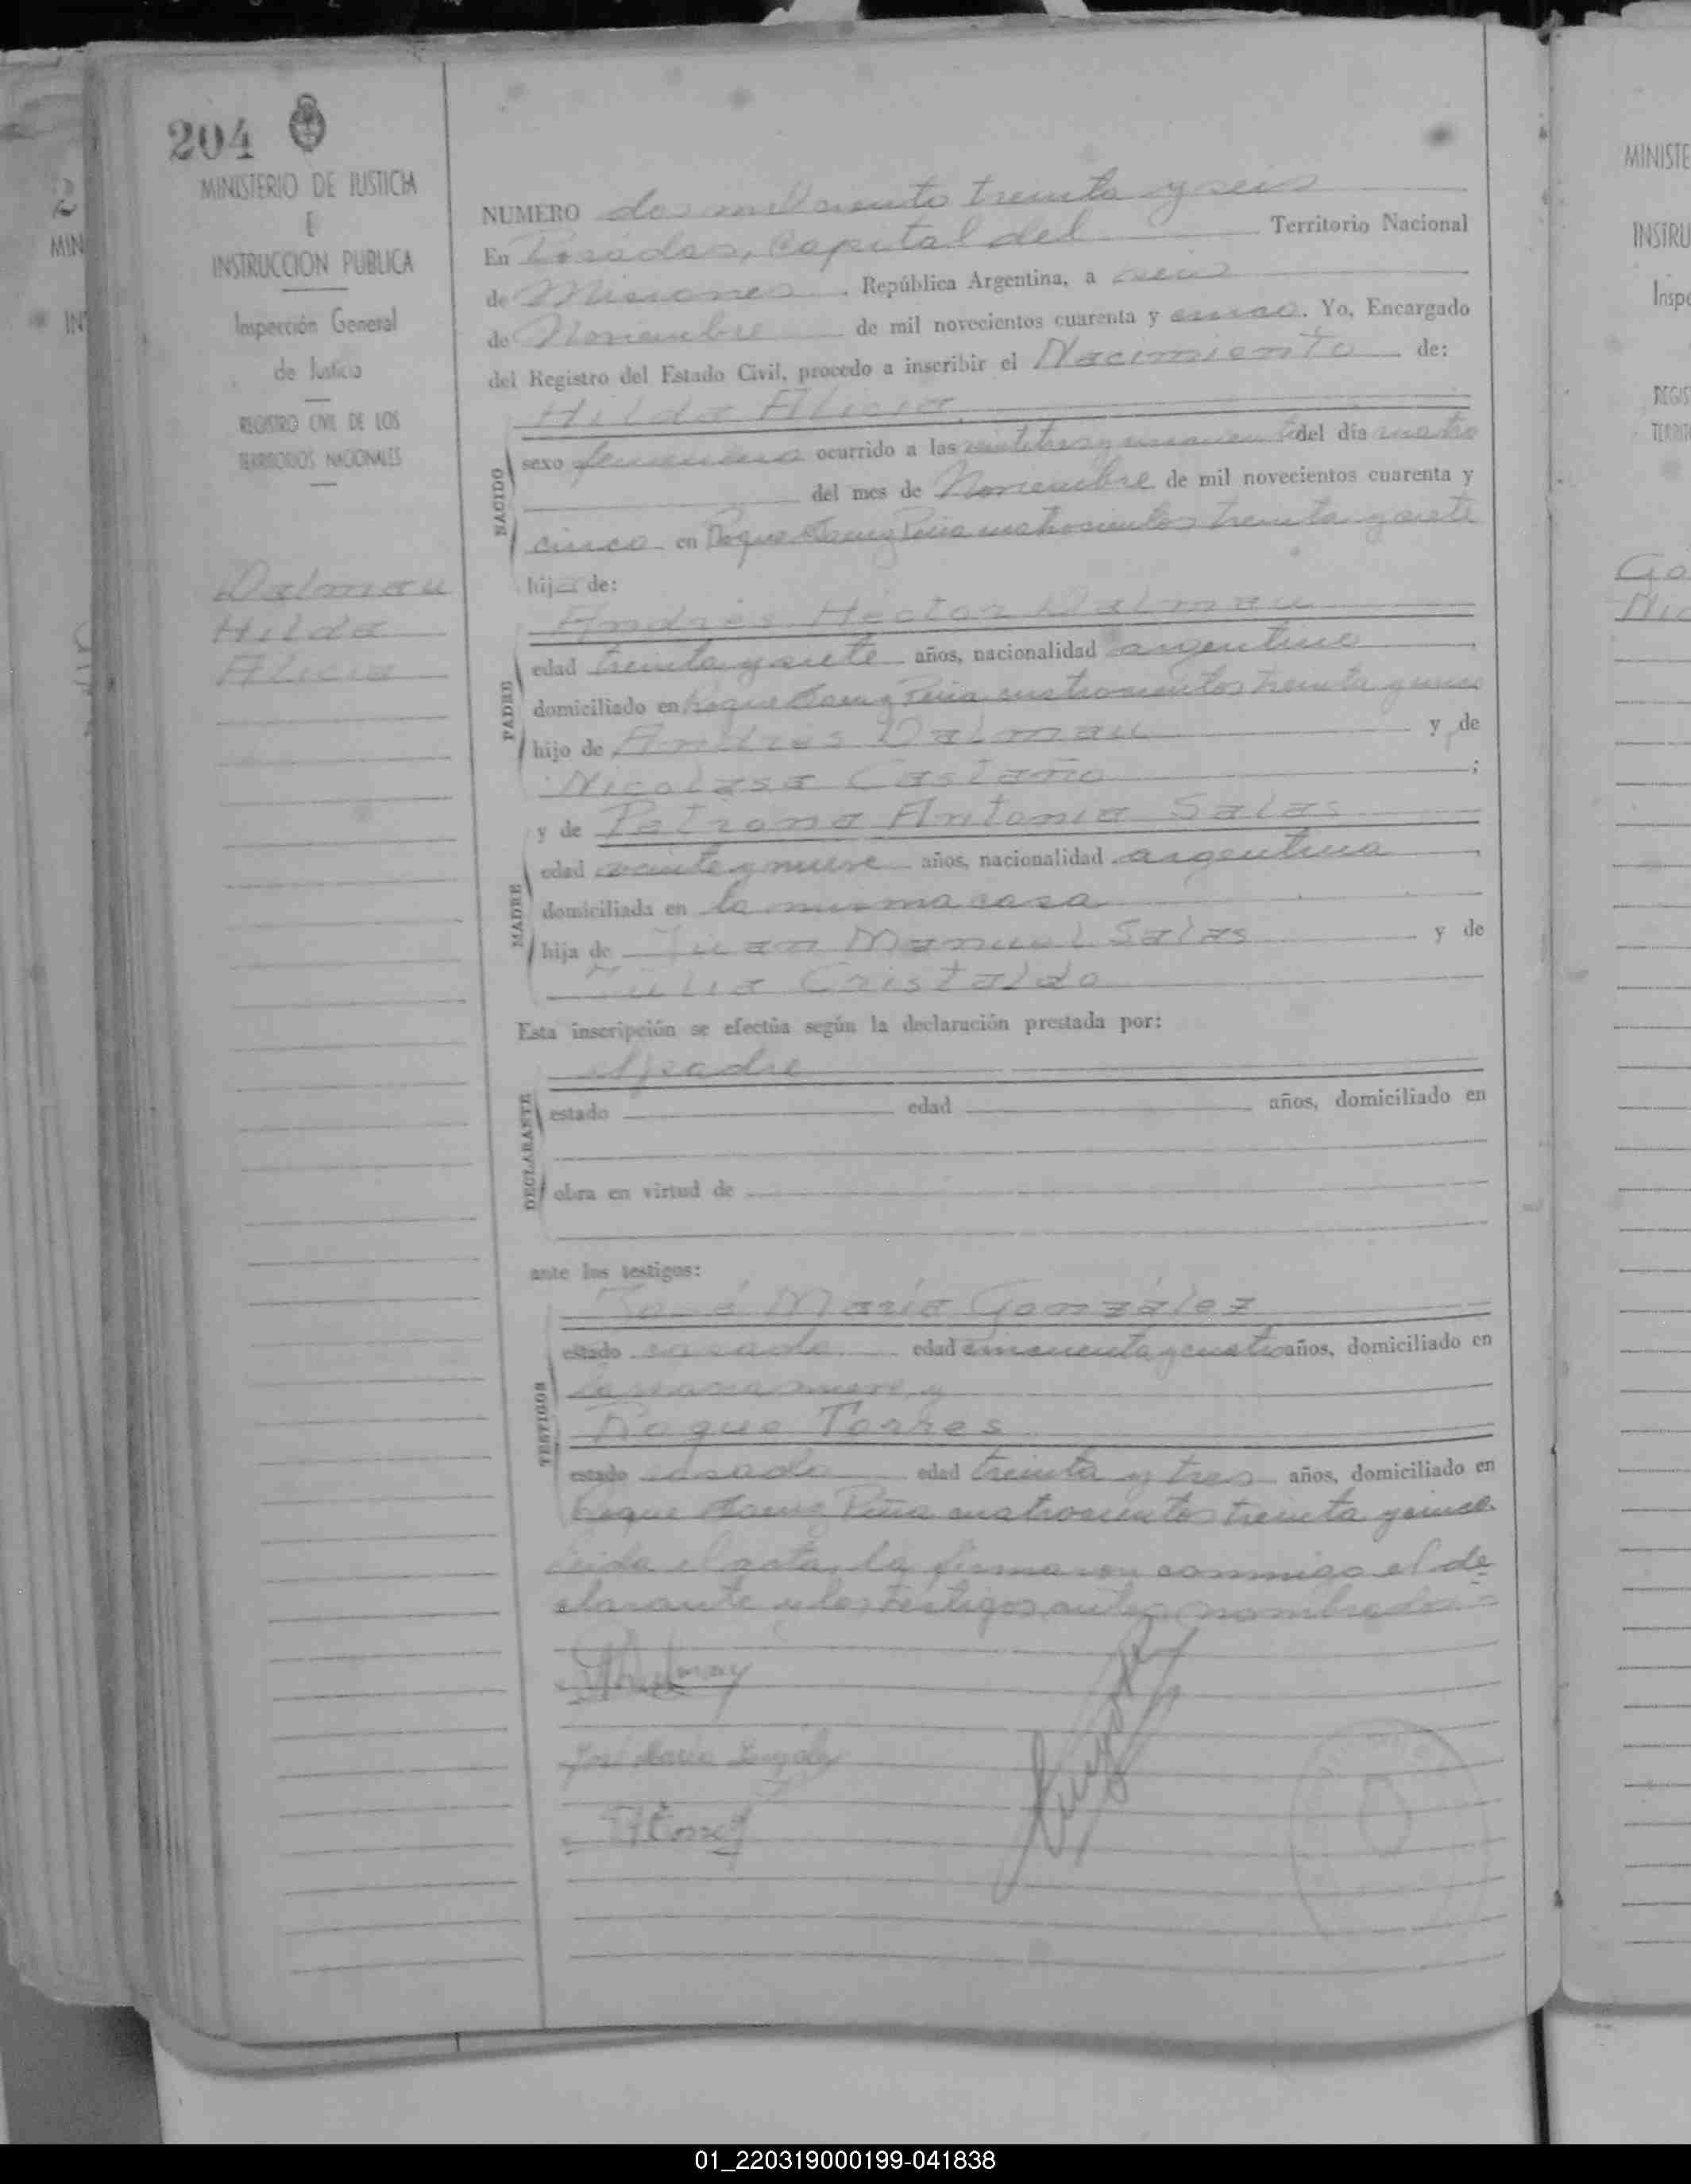 204
MINISTERIO DE JUSTICIA
E
INSTRUCCION PUBLICA
Inspección General
de Justicia
REGISTRO CIVIL DE LOS
TERRITORIOS NACIONALES
Dalmau
Hilda
Alicia
NUMERO dos mil ciento treinta y seis
En Posadas, Capital del Territorio Nacional
de Misiones, República Argentina, a seis
de Noviembre de mil novecientos cuarenta y cinco. Yo, Encargado
del Registro del Estado Civil, procedo a inscribir el Nacimiento de:
Hilda Alicia,
NACIDO
sexo femenino ocurrido a las del día cuatro
del mes de Noviembre de mil novecientos cuarenta y
cinco en Roque Saenz Peña cuatrocientos treinta y siete
hija de:
Andrés Héctor Dalmau
PADRE
edad treinta y siete años, nacionalidad argentino,
domiciliado en Roque Saenz Peña cuatrocientos treinta y
hijo de Andres Dalmau y de
Nicolasa Castaño;
y de Petrona Antonia Salas
MADRE
edad veinte y nueve años, nacionalidad argentina,
domiciliada en la misma casa
hija de Juan Manuel Salas y de
Julia Cristaldo
Esta inscripción se efectúa según la declaración prestada por:
el padre
DECLARANTE
estado edad años, domiciliado en
obra en virtud de
ante los testigos:
José María González
TESTIGOS
estado casado edad cincuenta y cuatro años, domiciliado en
y
Roque Torres
estado casado edad treinta y tres años, domiciliado en
Roque Saenz Peña cuatrocientos treinta y cinco.
Leida el acta, la firmaron conmigo el de-
clarante y los testigos antes nombrados=
José María Gonzalez
MINISTE
INSTRU
Inspe
REGIS
TERRIT
01_220319000199-041838